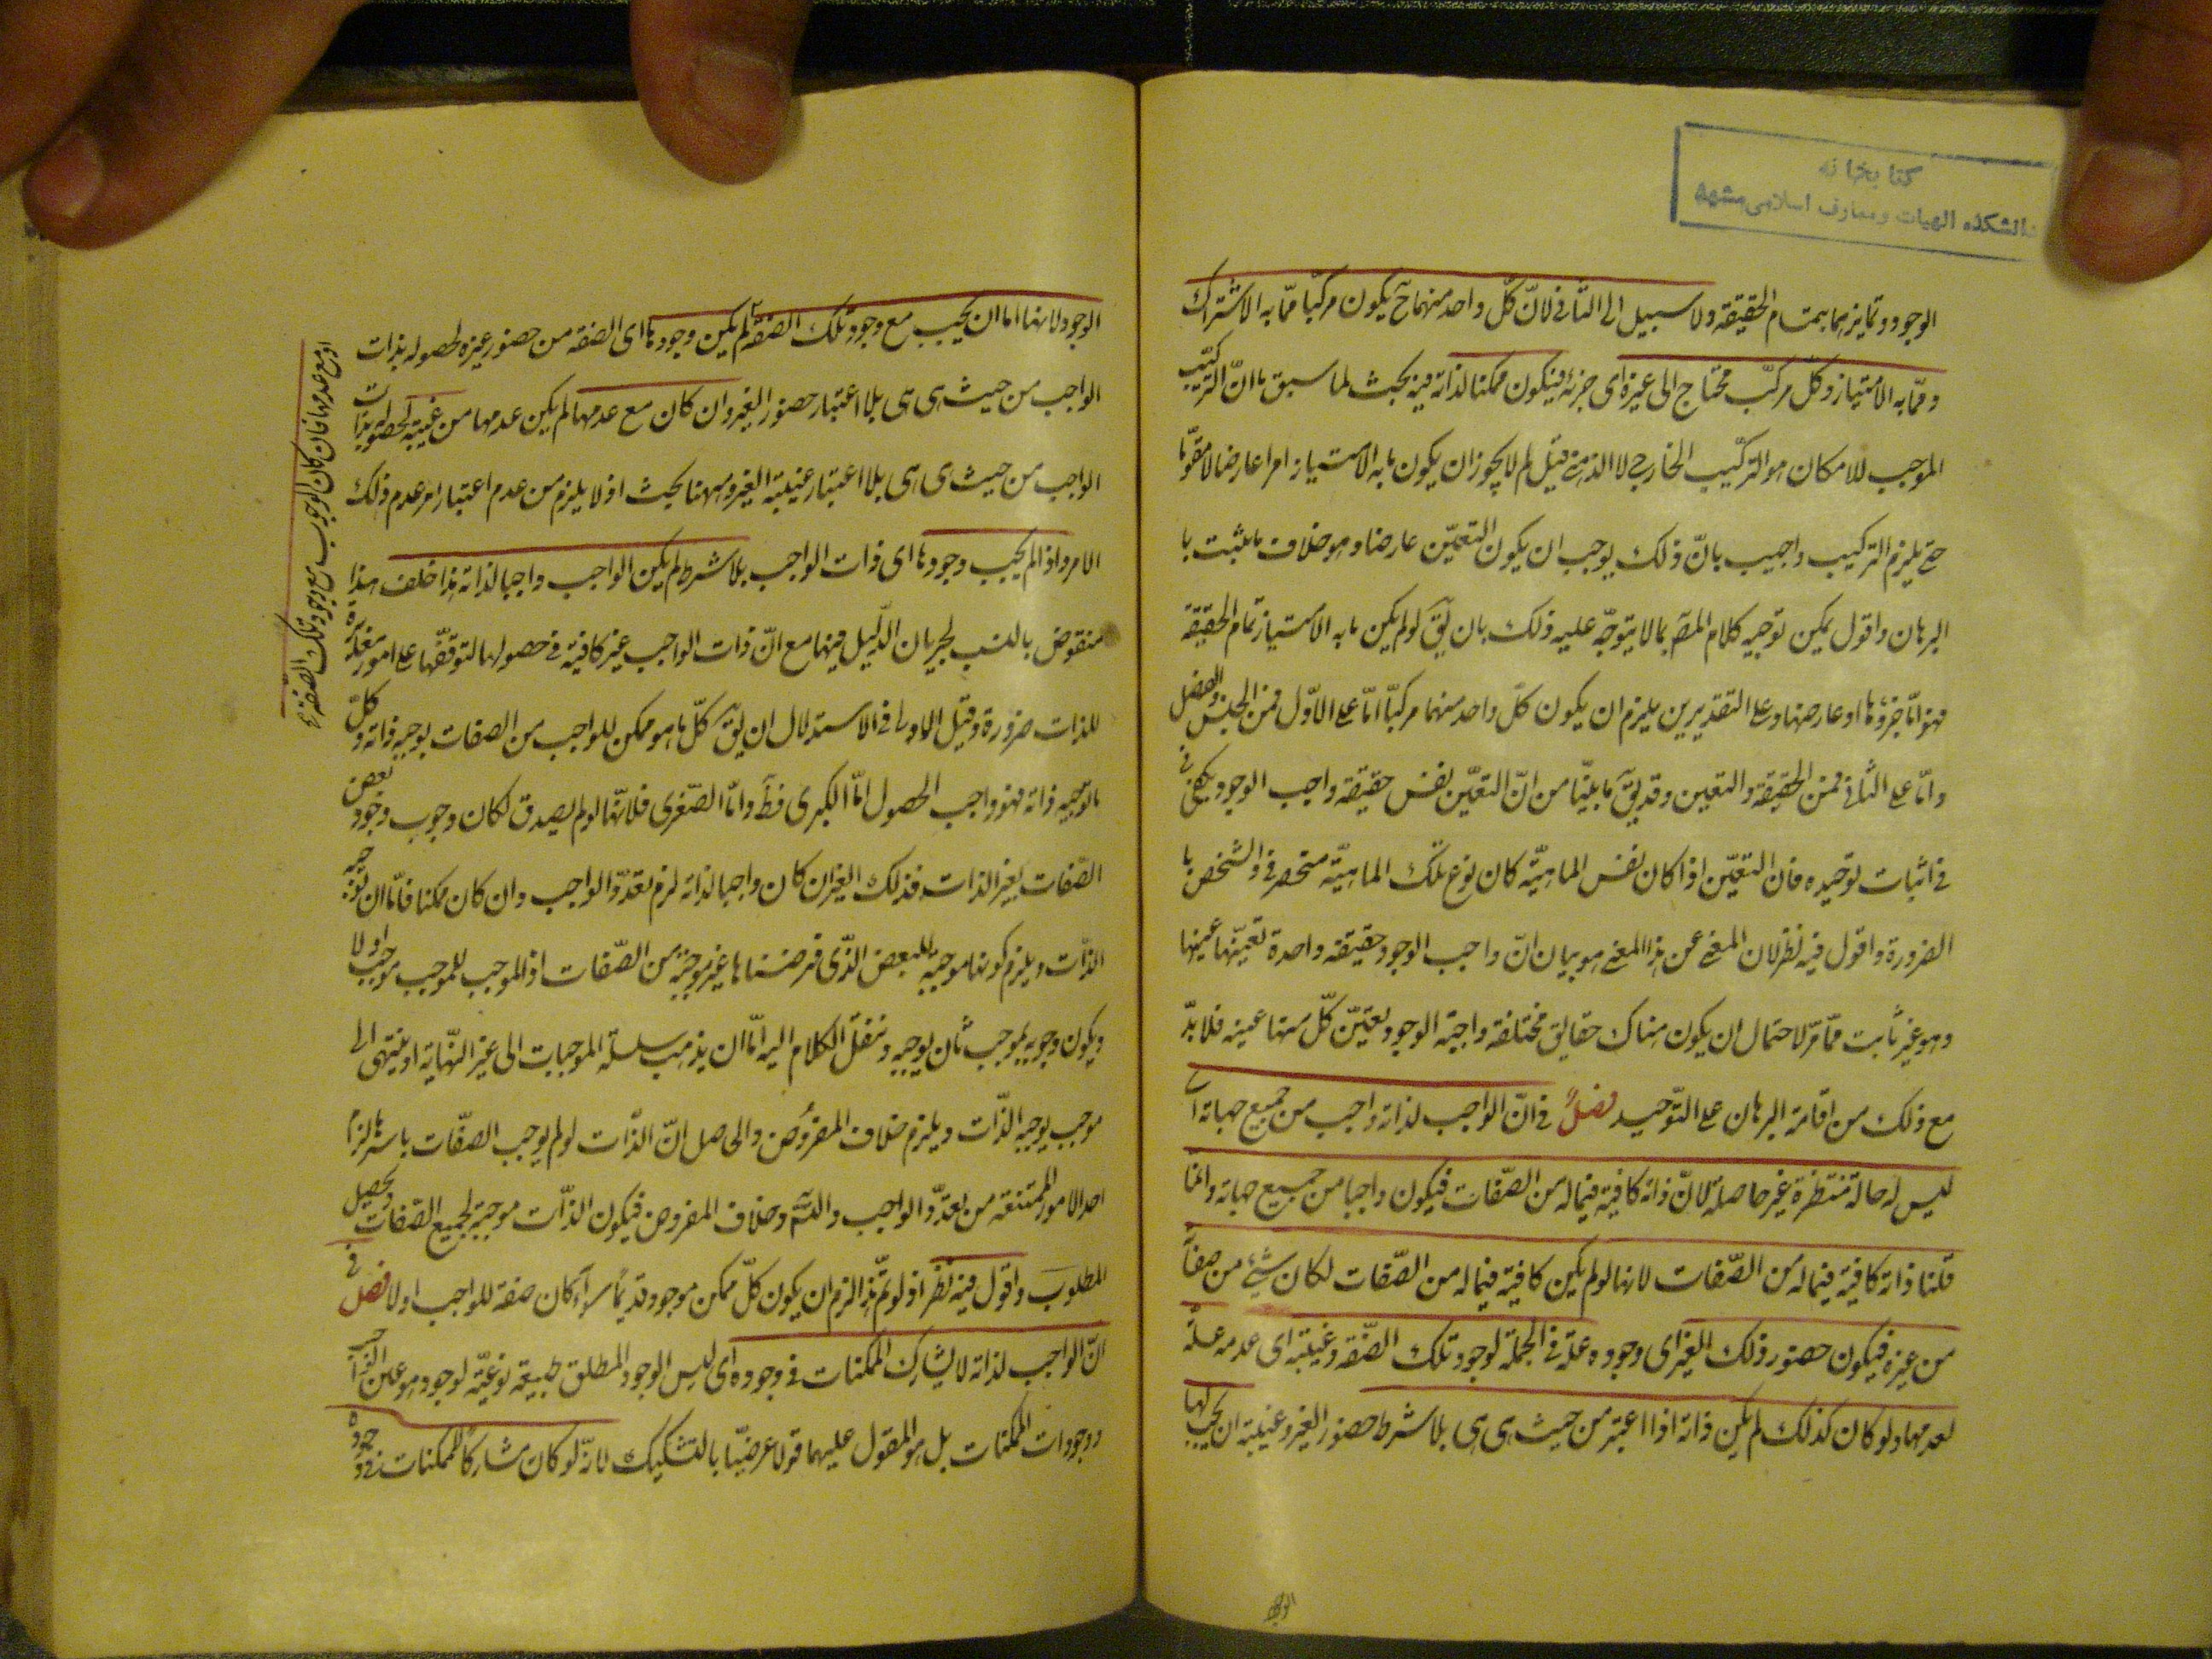 كتابخانه
دانشكده الهيات ومعارف اسلامى مشهد
الوجود وتمايزهما بتمام الحقيقة ولا سبيل الى الثانى لان كل واحد منهما ح يكون مركبا مما به الاشتراك
ومما به الامتياز وكل مركب محتاج الى غيره اى جزئه فيكون ممكنا لذاته فيه بحث لما سبق ان التركيب
الموجب للامكان هو التركيب الخارجى لا الذهنى قيل لم لا يجوز ان يكون ما به الامتياز امرا عارضا لا مقوما
حتى يلزم التركيب واجيب بان ذلك يوجب ان يكون التعين عارضا وهو خلاف ما ثبت با
البرهان واقول يمكن توجيه كلام المصر بما لا يتوجه عليه ذلك بان يق لو لم يكن ما به الامتياز تمام الحقيقة
فهو اما جزؤها او عارضها وعلى التقديرين يلزم ان يكون كل واحد منهما مركبا اما على الاول فمن الجنس والفصل
واما على الثانى فمن الحقيقة والتعين وقد يق ما بينا من ان التعين نفس حقيقة واجب الوجود يكفى
فى اثبات توحيده فان التعين اذا كان نفس الماهية كان نوع تلك الماهية منحصر فى الشخص با
الضرورة واقول فيه نظر لان المغنى عن هذا المعنى هو بيان ان واجب الوجود حقيقة واحدة تعينها عينها
وهو غير ثابت مما مر لاحتمال ان يكون هناك حقايق مختلفة واجبة الوجود وتعين كل منها عينه فلا بد
مع ذلك من اقامة البرهان على التوحيد فصل فى ان الواجب لذاته واجب من جميع جهاته اى
ليس له حالة منتظرة غير حاصلة لان ذاته كافية فيما له من الصفات فيكون واجبا من جميع جهاته وانما
قلنا ذاته كافية فيما له من الصفات لانها لو لم يكن كافية فيما له من الصفات لكان شىء من صفاته
من غيره فيكون حضور ذلك الغير اى وجوده علة فى الجملة لوجود تلك الصفة وغيبته اى عدمه علة
لعدمها ولو كان كذلك لم يكن ذاته اذا اعتبر من حيث هى هى بلا شرط حضور الغير وغيبته ان يجب لها
الوجود
الوجود لانها اما ان يجب مع وجود تلك الصفة لم يكن وجودها اى الصفة من حضور غيره لحصوله بذات
الواجب من حيث هى هى بلا اعتبار حضور الغير وان كان مع عدمها لم يكن عدمها من غيبته لحصوله بذات
الواجب من حيث هى هى بلا اعتبار غيبته الغير وههنا بحث اذ لا يلزم من عدم اعتبار امر عدم ذلك
الامر واذا لم يجب وجودها اى ذات الواجب بلا شرط لم يكن الواجب واجبا لذاته هذا خلف هذا
منقوض بالنسب لجريان الدليل فيها مع ان ذات الواجب غير كافية فى حصولها لتوقفها على امور مغايرة
للذات ضرورة وقيل الاولى فى الاستدلال ان يق كل ما هو ممكن للواجب من الصفات يوجبه ذاته وكل
ما يوجبه ذاته فهو واجب الحصول اما الكبرى فظ واما الصغرى فلانها لو لم يصدق لكان وجوب وجود بعض
الصفات بغير الذات فذلك الغير ان كان واجبا لذاته لزم تعدد الواجب وان كان ممكنا فاما ان توجبه
الذات ويلزم كونها موجبة للبعض الذى فرضناها غير موجبة من الصفات اذ الموجب للموجب موجب او لا
ويكون وجوبه بموجب ثان يوجبه وننقل الكلام اليه اما ان يذهب سلسلة الموجبات الى غير النهاية او ينتهى الى
موجب يوجبه الذات ويلزم خلاف المفروض والحاصل ان الذات لو لم يوجب الصفات باسرها لزم
احد الامور الممتنعة من تعدد الواجب والتسم وخلاف المفروض فيكون الذات موجبة لجميع الصفات ويحصل
المطلوب واقول فيه نظر اذ لو تم هذا لزم ان يكون كل ممكن موجود قديما سواء كان صفة للواجب او لا فصل فى
ان الواجب لذاته لا يشارك الممكنات فى وجوده اى ليس الوجود المطلق طبيعة نوعية لوجود هو عين الواجب
ووجودات الممكنات بل هو المقول عليهما قولا عرضيا بالتشكيك لانه لو كان مشاركا للممكنات فى وجوده
او مع عدمها فان كان الوجوب مع وجود تلك الصفة